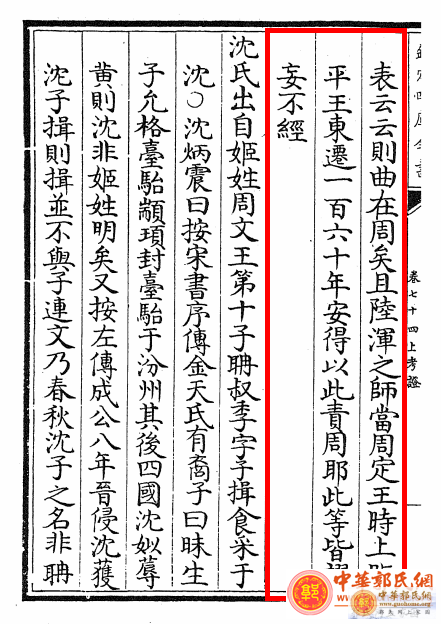 表云云則曲在周矣且陸渾之師當周定王時上
平王東遷一百六十年安得以此責周耶此等皆
妄不經
沈氏出自姬姓周文王第十子聃叔季字子揖食采于
沈○沈炳震曰按宋書序傳金天氏有裔子曰昧生
子允格臺駘顓頊封臺駘于汾州其後四國沈姒蓐
黄則沈非姬姓明矣又按左傳成公八年晉侵沈獲
沈子揖則揖並不與子連文乃春秋沈子之名非聃
卷七十四上考證
中華郭氏網
www.guoshi.com
中華郭氏網